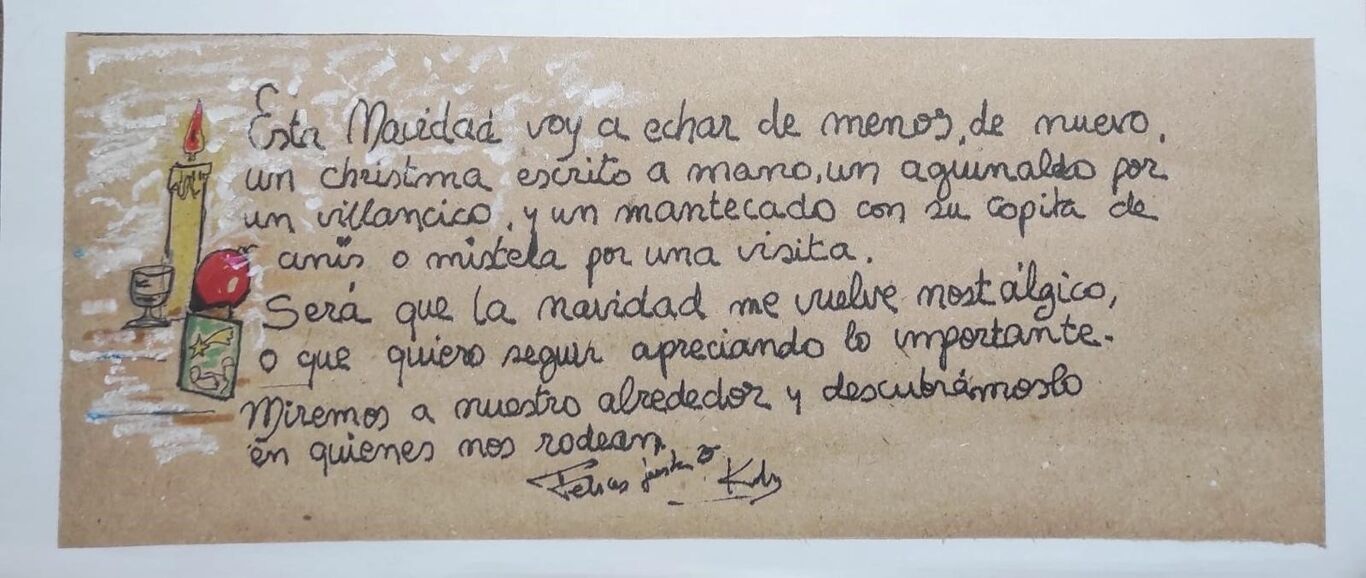 Esta Navidad voy a echar de menos, de nuevo,
un christma escrito a mano, un aguinaldo por
un villancico, y un mantecado con su copita de
anis o mistela por una visita.
Será que la navidad me vuelve nostálgico,
o que quiero seguir apreciando lo importante.
Miremos a nuestro alrededor y descubrámoslo
en quienes nos rodean.
Felices